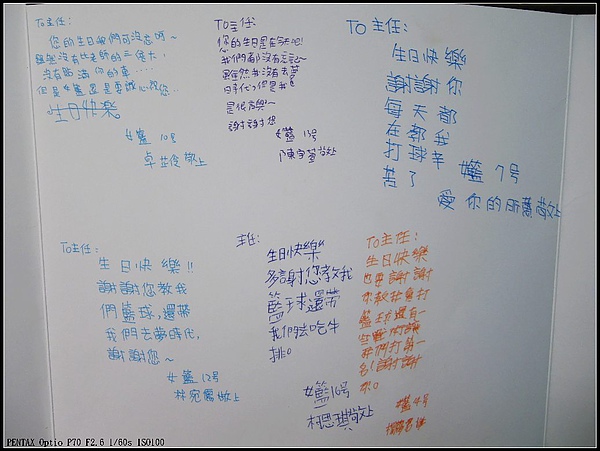 To主任:
您的生日我們可沒忘呵~
雖然沒有比老師的三倍大,
沒有貼滿你的車....
但是女籃還是要誠心祝您..
生日快樂
女籃 10号
敬上
To主任:
你的生日是在今天吧!
我們都沒有忘記~
雖然我沒有去夢
時代,但是我
是很高興~
謝謝您
女籃 13号
敬上
To 主任:
生日快樂
謝謝你
每天都
在教我
打球辛
苦了
女籃 7号
愛你的 敬上
To主任:
生日快樂!!
謝謝您教我
們籃球,還帶
我們去夢時代,
謝謝您~
女籃 12号
林宛 敬上
主任:
生日快樂
多謝您教我
籃球還帶
我們去吃牛
排。
女籃16号
柯思琪敬上
To主任:
生日快樂
也要謝謝
你教我會打
籃球還有一
我們打第一
名!謝謝
你。
女籃 4号
PENTAX Optio P70 F2.6 1/60s ISO100